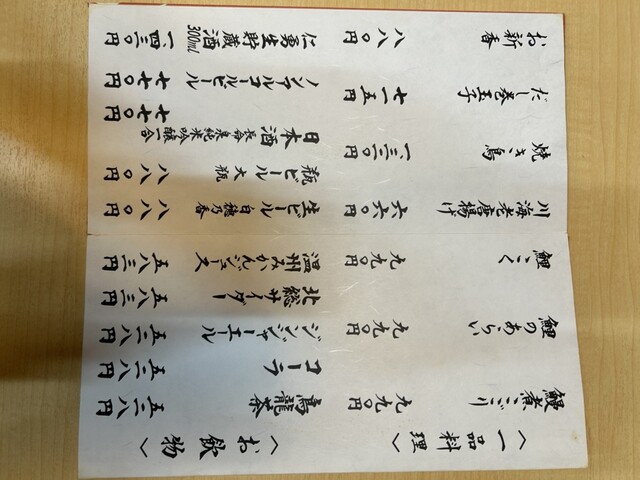 〈一品料理〉
鰻煮こごり 九九〇円
鯉のあらい 九九〇円
鯉こく 九九〇円
川海老唐揚げ 六六〇円
焼き鳥 一、三二〇円
だし巻玉子 七一五円
お新香 八八〇円
〈お飲物〉
烏龍茶 五二八円
コーラ 五二八円
ジンジャーエール 五二八円
北総サイダー 五八三円
温州みかんジュース 五八三円
生ビール 白穂乃香 八八〇円
瓶ビール 大瓶 八八〇円
日本酒 長命泉純米吟醸一合 七七〇円
ノンアルコールビール 七七〇円
仁勇生貯蔵酒 300ml 一、四三〇円